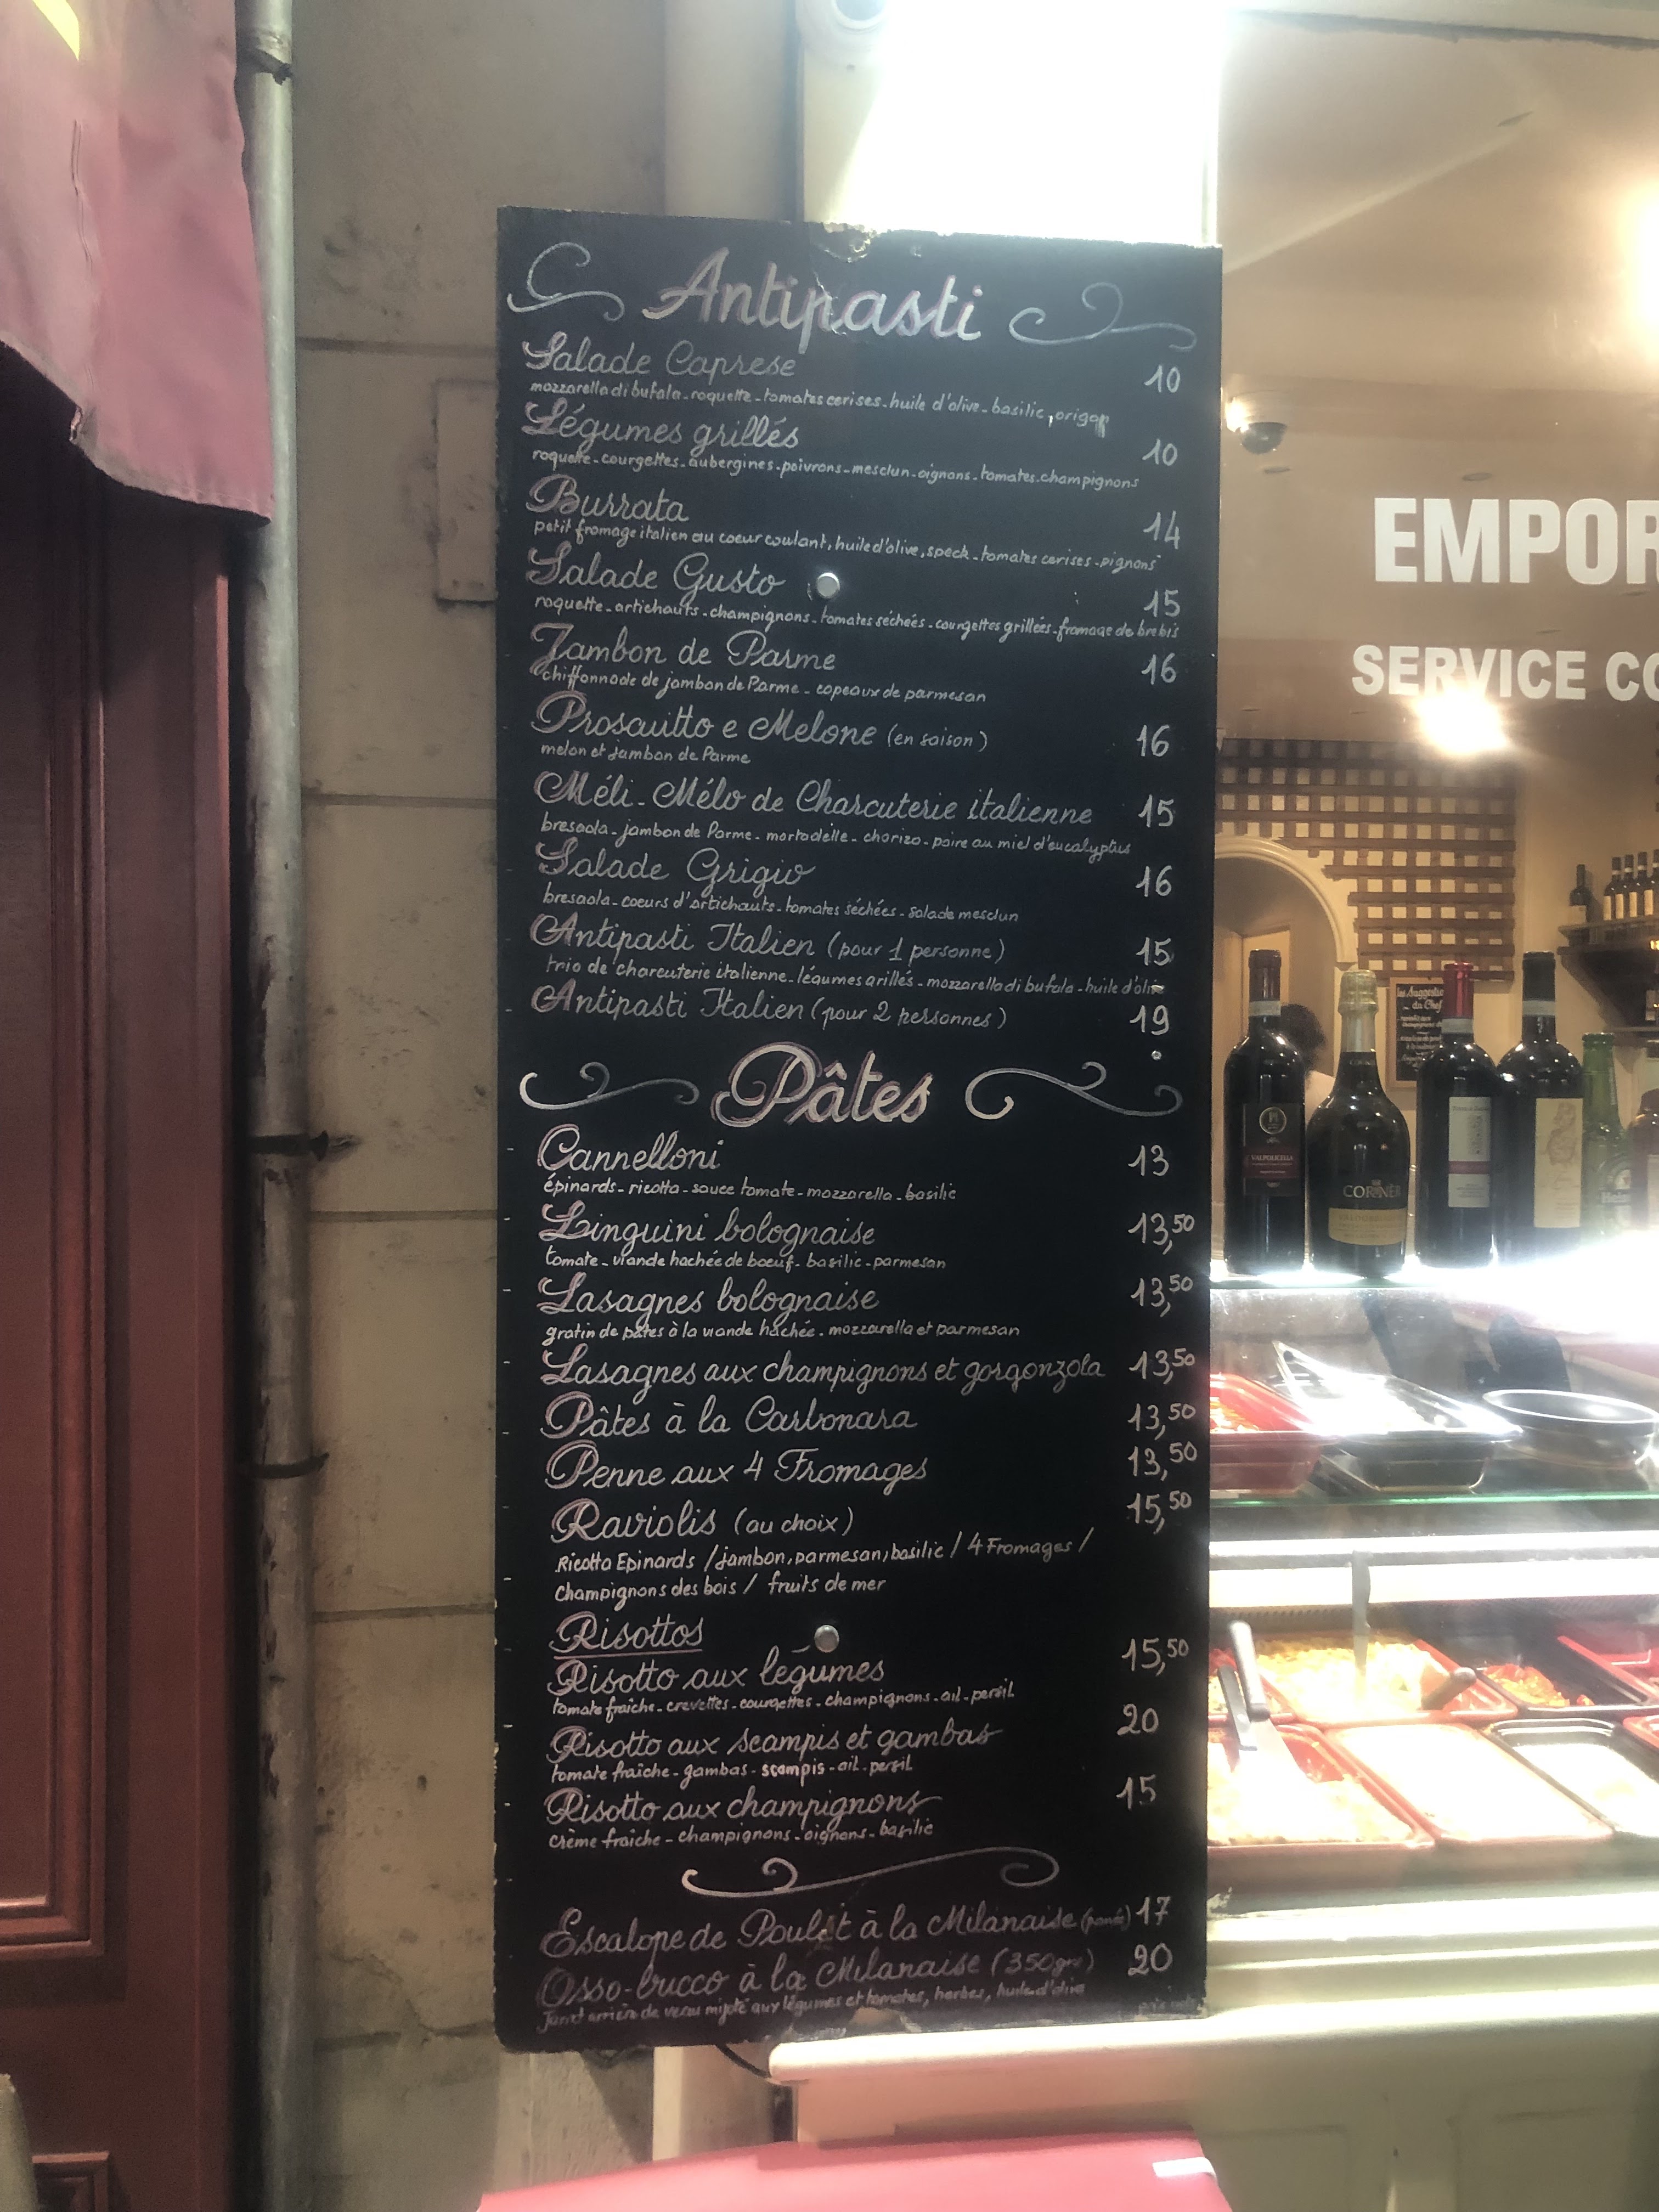 Antipasti
Salade Caprese 10
mozzarella di bufala - roquette - tomates cerises - huile d'olive - basilic, origan
Légumes grillés 10
roquette - courgettes - aubergines - poivrons - mesclun - oignons - tomates - champignons
Burrata 14
petit fromage italien au coeur coulant, huile d'olive, speck - tomates cerises - pignons
Salade Gusto 15
roquette - artichauts - champignons - tomates séchées - courgettes grillées - fromage de brebis
Jambon de Parme 16
chiffonnade de jambon de Parme - copeaux de parmesan
Proscuitto e Melone (en saison) 16
melon et jambon de Parme
Méli-Mélo de Charcuterie italienne 15
bresaola - jambon de Parme - mortadelle - chorizo - poire au miel d'eucalyptus
Salade Grigio 16
bresaola - coeurs d'artichauts - tomates séchées - salade mesclun
Antipasti Italien (pour 1 personne) 15
trio de charcuterie italienne - légumes grillés - mozzarella di bufala - huile d'olive
Antipasti Italien (pour 2 personnes) 19
Pâtes
Cannelloni 13
épinards - ricotta - sauce tomate - mozzarella - basilic
Linguini bolognaise 13,50
tomate - viande hachée de boeuf - basilic - parmesan
Lasagnes bolognaise 13,50
gratin de pâtes à la viande hachée - mozzarella et parmesan
Lasagnes aux champignons et gorgonzola 13,50
Pâtes à la Carbonara 13,50
Penne aux 4 Fromages 13,50
Raviolis (au choix) 15,50
Ricotta Epinards / jambon, parmesan, basilic / 4 Fromages /
Champignons des bois / fruits de mer
Risottos
Risotto aux légumes 15,50
tomate fraîche - crevettes - courgettes - champignons - ail - persil
Risotto aux scampis et gambas 20
tomate fraîche - gambas - scampis - ail - persil
Risotto aux champignons 15
crème fraîche - champignons - oignons - basilic
Escalope de Poulet à la Milanaise (pané) 17
Osso-bucco à la Milanaise (350gr) 20
Jarret arrière de veau mijoté aux légumes et tomates, herbes, huile d'olive
EMPOR
SERVICE CO
les Suggestions
du Chef
VALPOLICELLA
CORNER
Hein